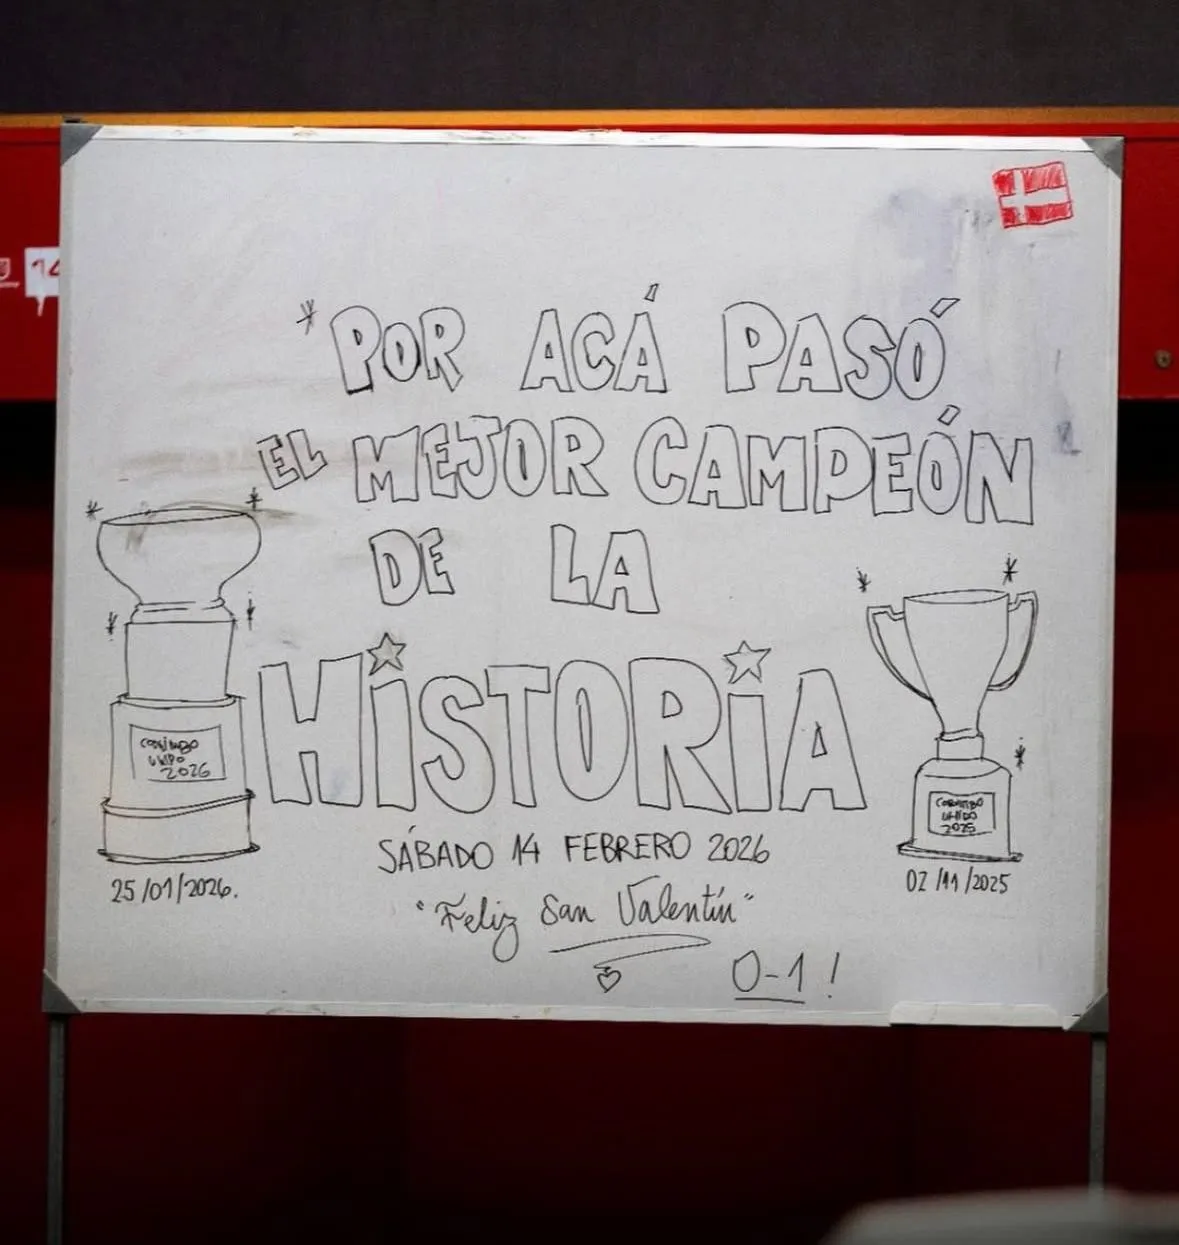 POR ACÁ PASÓ
EL MEJOR CAMPEÓN
DE LA
HiSTORiA
COQUIMBO
UNIDO
2026
25/01/2026.
COQUIMBO
UNIDO
2025
02/11/2025
SÁBADO 14 FEBRERO 2026
"Feliz San Valentín"
0-1!